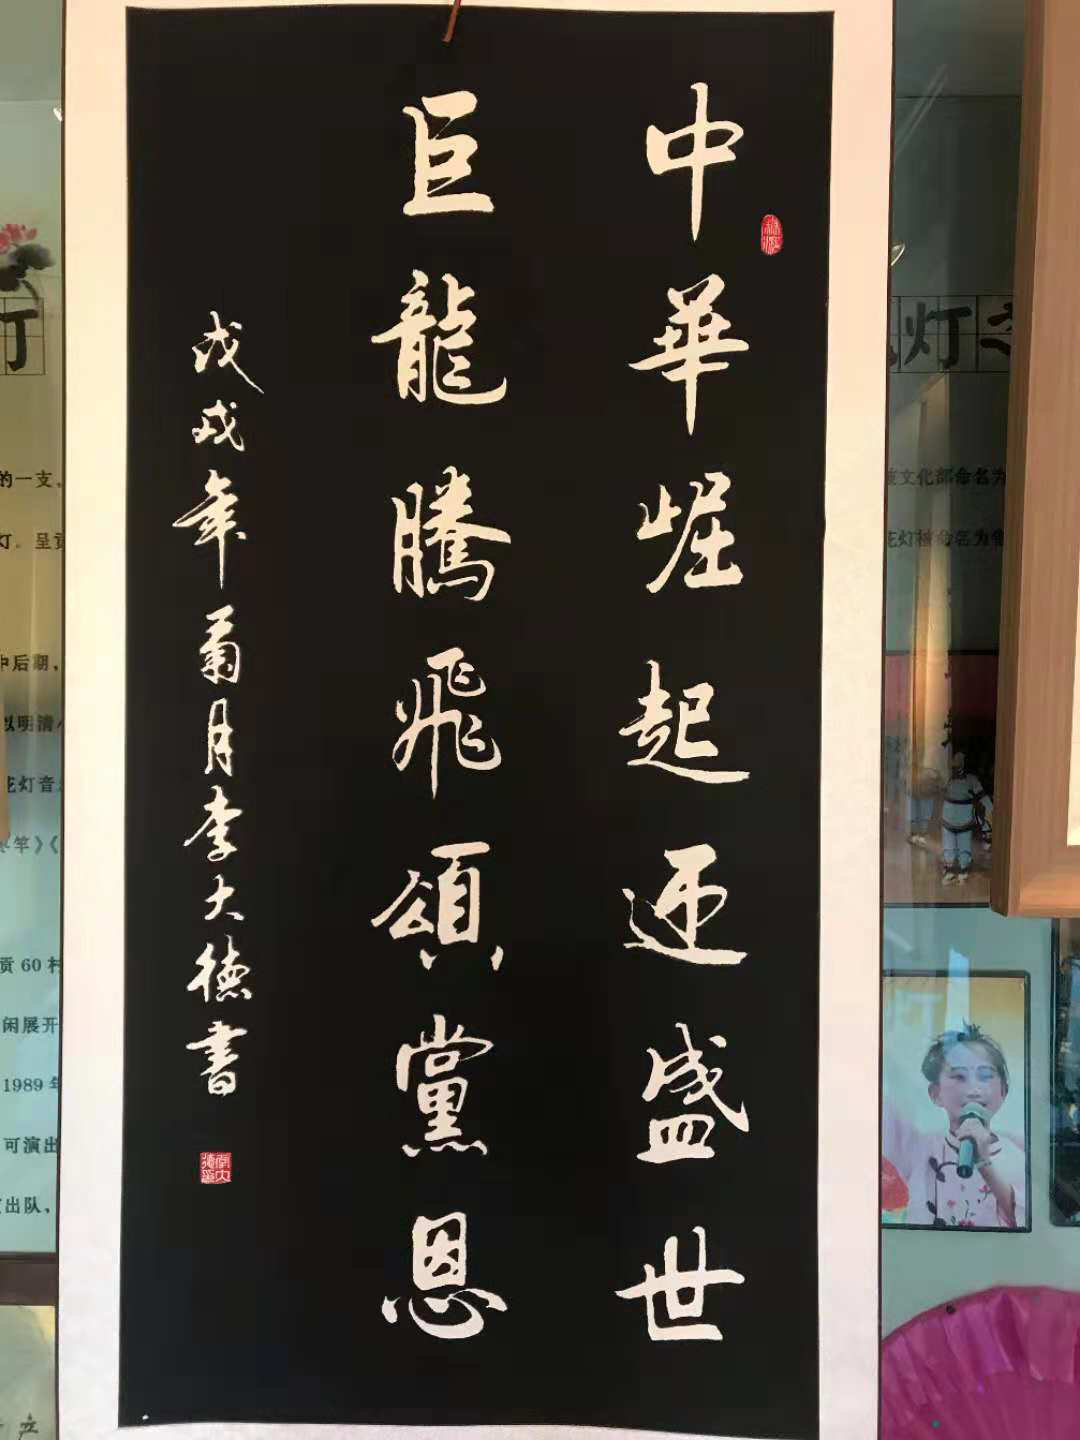 中華崛起迎盛世
巨龍騰飛頌黨恩
戊戌年菊月李大德書
李大德印
的一支，
灯。呈贡
中后期，
以明清
花灯音
竿》《
贡 60 村
闲展开
1989 年
可演出
出队，
灯
文化部命名为
花灯被命名为